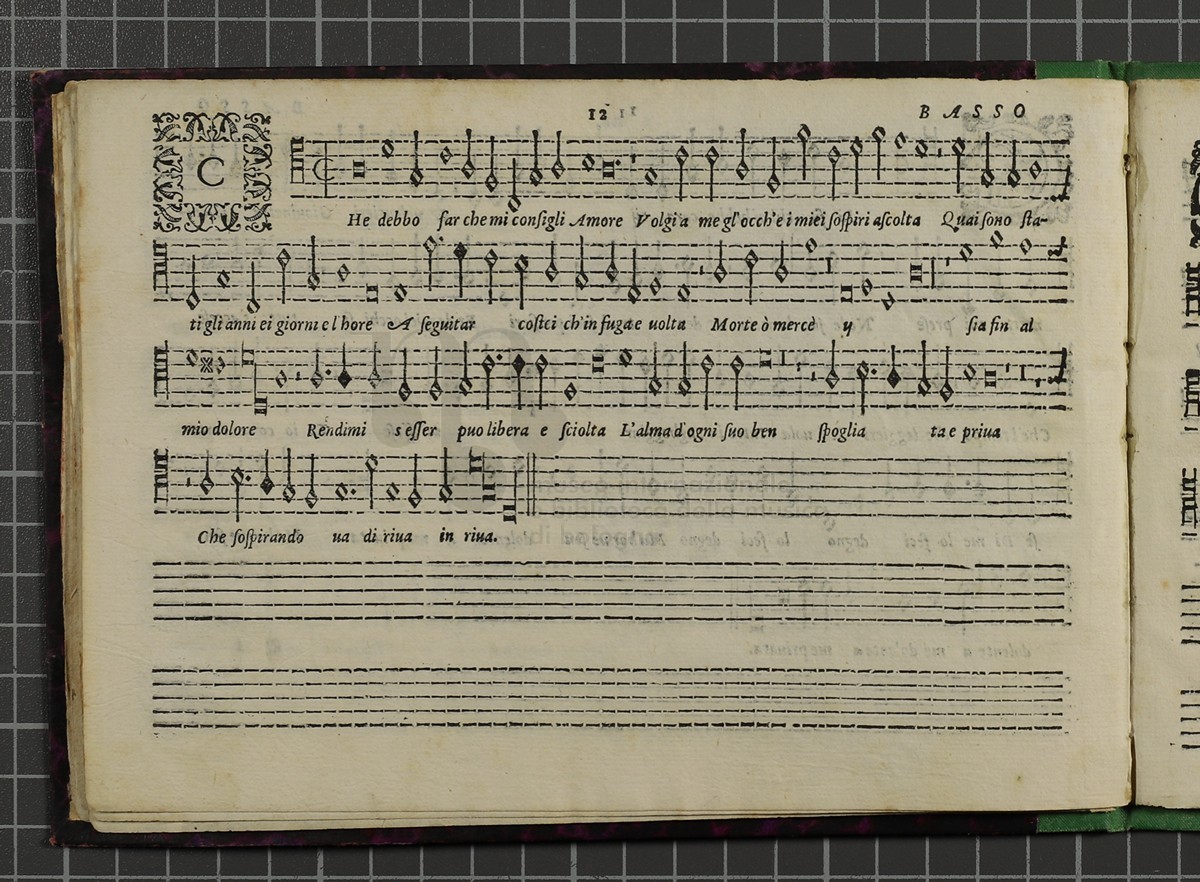 12 BASSO
C
He debbo far che mi consigli Amore Volgi a me gl'occh'e i miei sospiri ascolta Quai sono sta-
ti gli anni ei giorni e l hore A seguitar costei ch'in fuga e uolta Morte ò mercè y sia fin al
mio dolore Rendimi s esser puo libera e sciolta L'alma d'ogni suo ben spoglia ta e priua
Che sospirando ua di riua in riua.